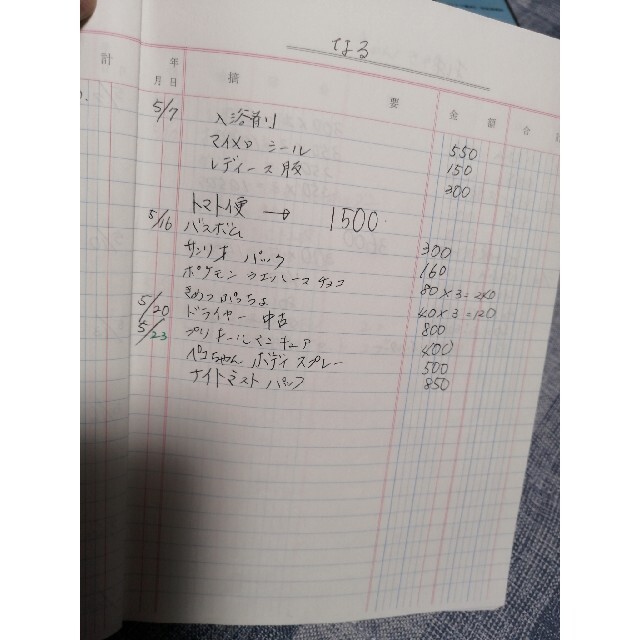 なる
計 年 月 日 摘 要 金 額 合
5/7 入浴剤 550
マイメロ シール 150
レディース服 300
トマト便 → 1500
5/16 バスボム 300
サンリオ パック 160
ポケモン ウエハース チョコ 80×3=240
きめつ ぷっちょ 40×3=120
5/20 ドライヤー 中古 800
5/23 プリネイルマニキュア 400
ペコちゃん ボディスプレー 500
ナイトミスト パフ 850